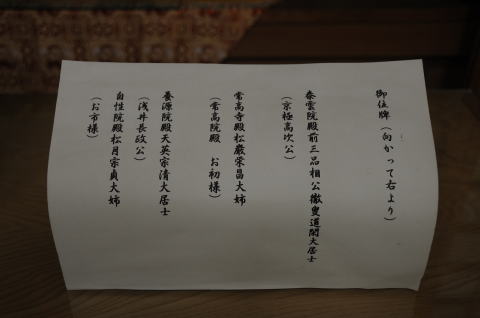 御位牌（向かって右より）
泰雲院殿前三品相公徹叟道閑大居士
（京極高次公）
常高寺殿松巌栄昌大姉
（常高院殿　お初様）
養源院殿天英宗清大居士
（浅井長政公）
自性院殿松月宗貞大姉
（お市様）